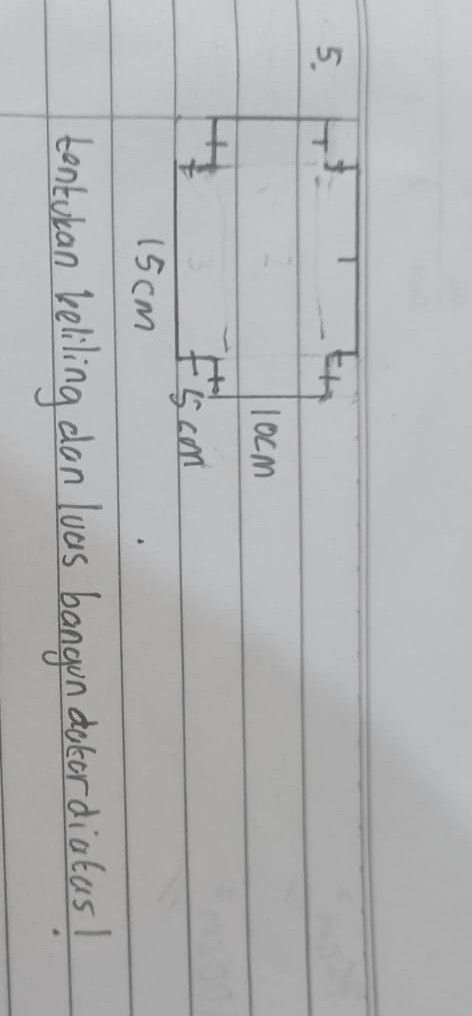 5.
1
2
3
10cm
5cm
15cm
tentukan keliling dan luas bangun datar diatas!